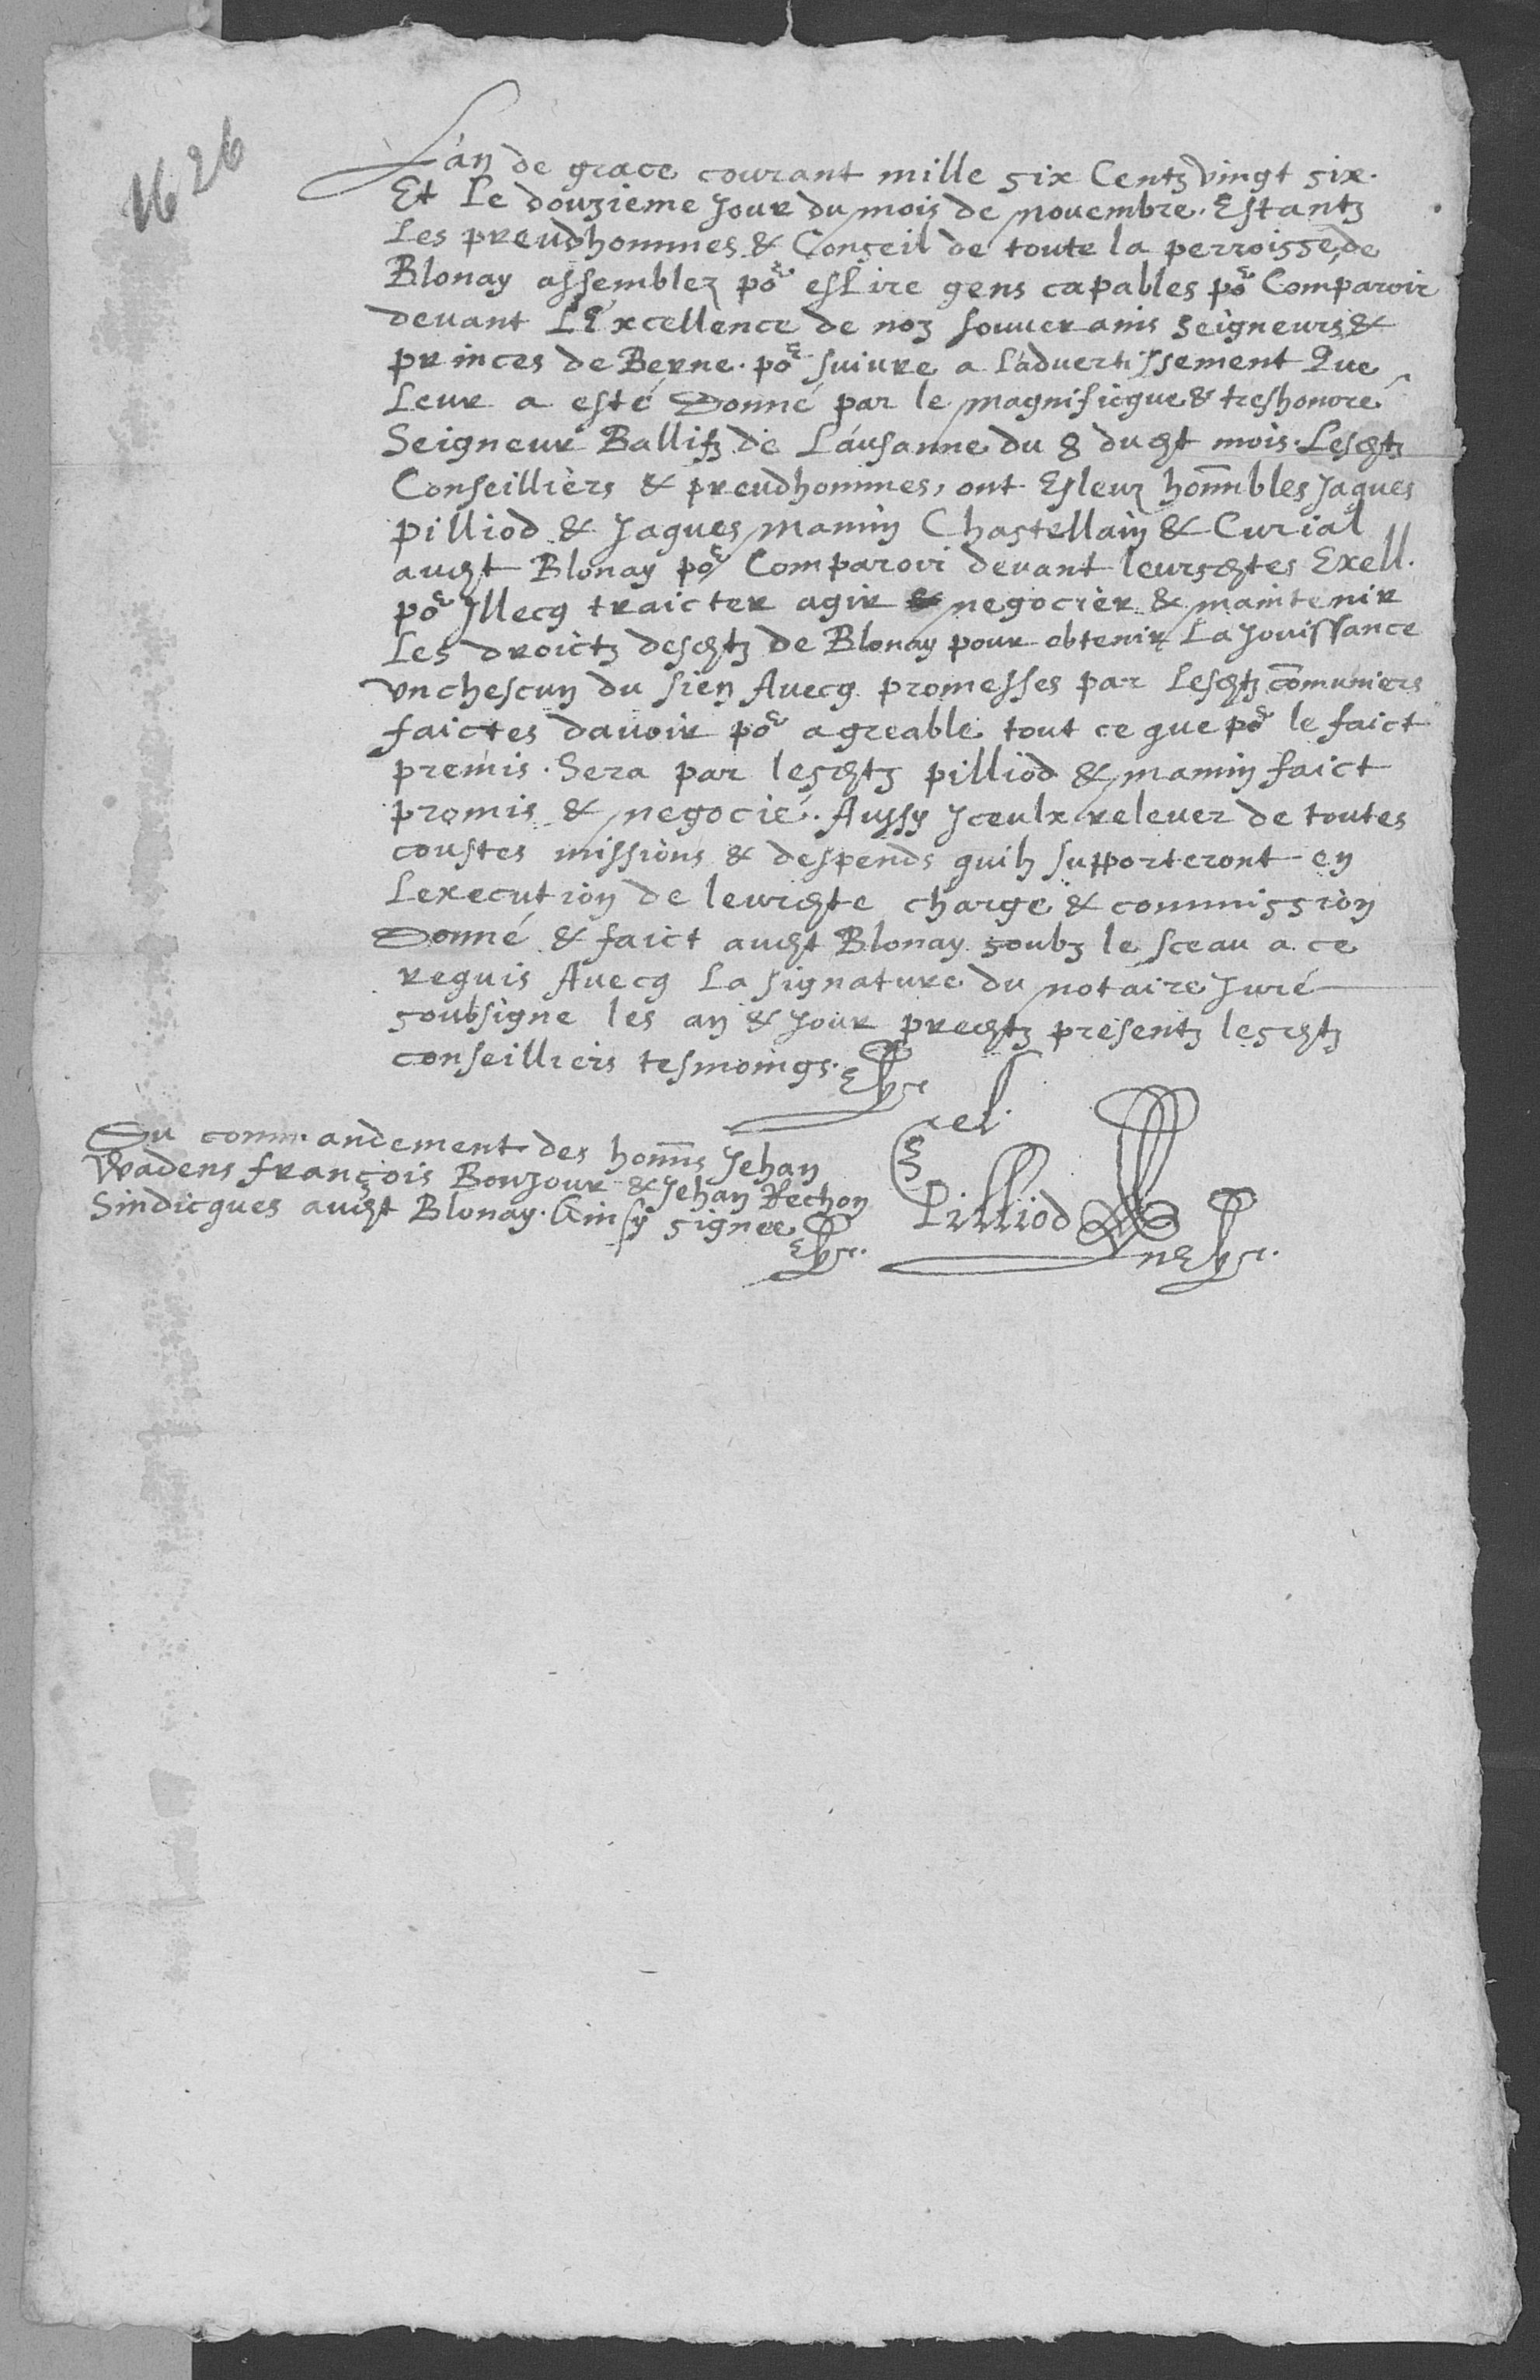 1626
Lan de grace courant mille six Centz vingt six.
Et Le douzieme Jour du mois de novembre. Estantz
Les preudhommes & Conseil de toute la perroisse de
Blonay assemblez por esLire gens capables por Comparoir
devant LExcellence de noz souverains seigneurs &
princes de Berne. por suivre a Ladvertissement Que
Leur a esté Donné par le magnificque & treshonoré
Seigneur Ballifz de Lausanne du 8 dudt mois. Lesdtz
Conseilliers & preudhommes, ont Esleuz honnbles Jaques
pilliod & Jaques mamin Chastellain & Curial
audt Blonay por Comparoir devant leursdtes Exell.
por Jllecq traicter agir & negocier & maintenir
Les droictz desdtz de Blonay pour obtenir La Jouissance
vn chescun du sien Avecq promesses par Lesdtz communiers
faictes davoir por agreable tout ce que por le faict
premis. Sera par lesdtz pilliod & mamin faict
promis & negocié. Aussy Jceulx relever de toutes
coustes missions & despends quilz supporteront en
Lexecution de leurdte charge & commission
Donné & faict audt Blonay soubz le sceau a ce
requis Avecq La signature du notaire Juré
soubsigne les an & Jour predtz presentz lesdtz
conseilliers tesmoings.
Du commandement des honns Jehan
Wadens françois Bonjour & Jehan Rechon
Sindicques audt Blonay. Ainsy signee
Pilliod